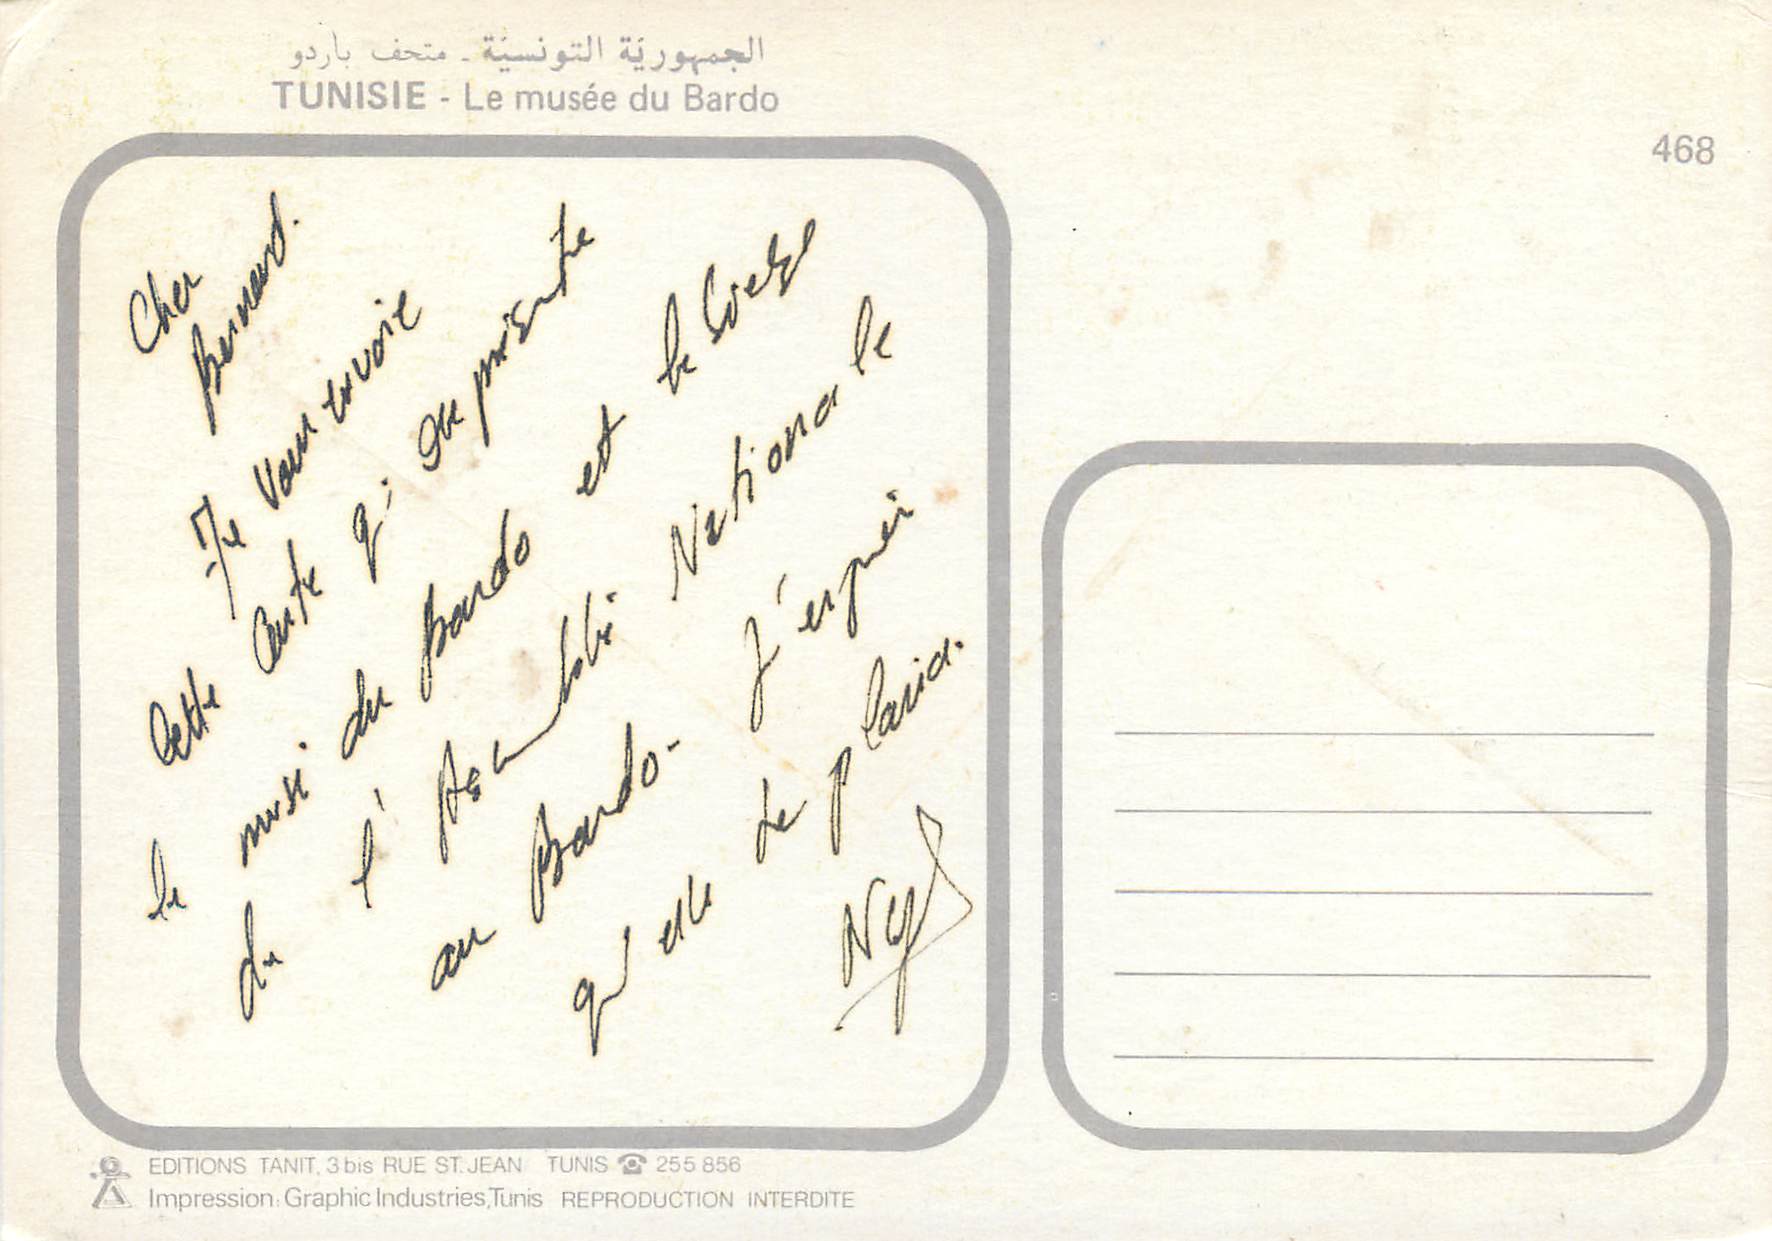 الجمهورية التونسية - متحف باردو
TUNISIE - Le musée du Bardo
468
Cher
Bernard.
Je vous envoie
Cette Carte qui représente
le musée du Bardo et le
de l'Assemblée Nationale
au Bardo - J'espère
qu'elle te plaira.
EDITIONS TANIT, 3 bis RUE ST. JEAN TUNIS ☎ 255 856
Impression: Graphic Industries, Tunis REPRODUCTION INTERDITE